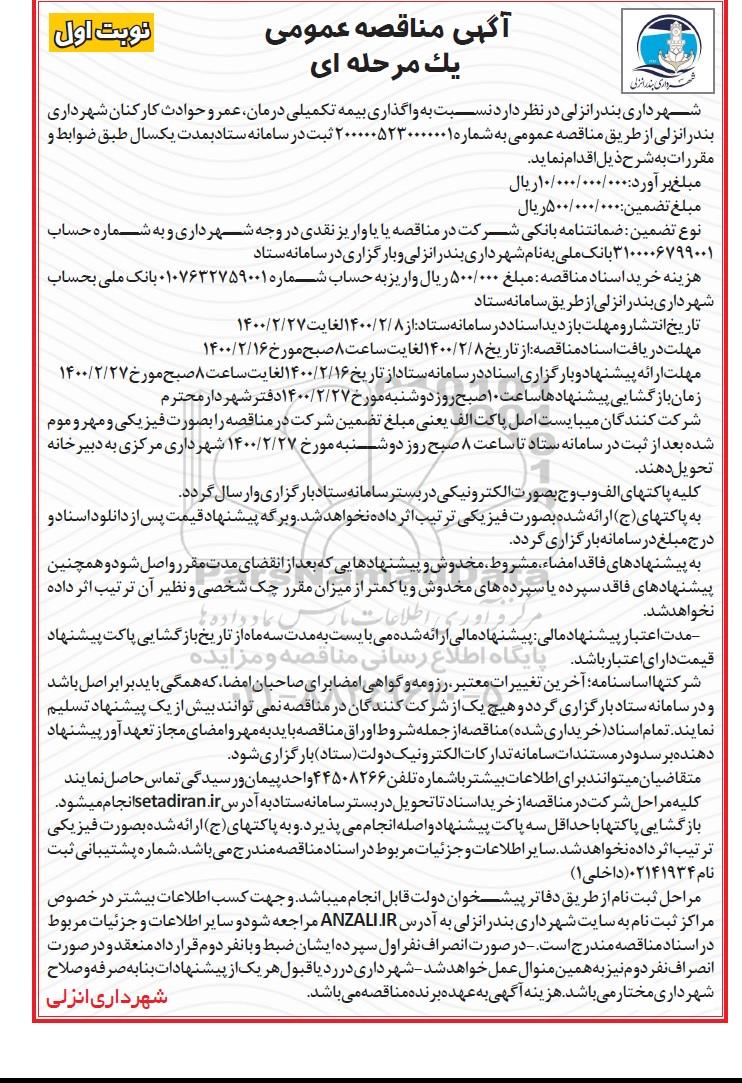 نوبت اول
آگهی مناقصه عمومی
یك مرحله ای
شهرداری بندرانزلی
شهرداری بندرانزلی در نظر دارد نسبت به واگذاری بیمه تکمیلی درمان، عمر و حوادث کارکنان شهرداری
بندرانزلی از طریق مناقصه عمومی به شماره ۲۰۰۰۰۰۵۲۳۰۰۰۰۰۰۱ ثبت در سامانه ستاد بمدت یکسال طبق ضوابط و
مقررات به شرح ذیل اقدام نماید.
مبلغ برآورد: ۱۰/۰۰۰/۰۰۰/۰۰۰ ریال
مبلغ تضمین: ۵۰۰/۰۰۰/۰۰۰ ریال
نوع تضمین : ضمانتنامه بانکی شرکت در مناقصه یا یا واریز نقدی در وجه شهرداری و به شماره حساب
۳۱۰۰۰۰۶۷۹۹۰۰۱ بانک ملی به نام شهرداری بندرانزلی و بارگزاری در سامانه ستاد
هزینه خرید اسناد مناقصه : مبلغ ۵۰۰/۰۰۰ ریال واریز به حساب شماره ۰۱۰۷۶۳۲۷۵۹۰۰۱ بانک ملی بحساب
شهرداری بندرانزلی از طریق سامانه ستاد
تاریخ انتشار و مهلت بازدید اسناد در سامانه ستاد: از ۱۴۰۰/۲/۸ لغایت ۱۴۰۰/۲/۲۷
مهلت دریافت اسناد مناقصه: از تاریخ ۱۴۰۰/۲/۸ لغایت ساعت ۸ صبح مورخ ۱۴۰۰/۲/۱۶
مهلت ارائه پیشنهاد و بارگزاری اسناد در سامانه ستاد از تاریخ ۱۴۰۰/۲/۱۶ لغایت ساعت ۸ صبح مورخ ۱۴۰۰/۲/۲۷
زمان بازگشایی پیشنهادها ساعت ۱۰ صبح روز دوشنبه مورخ ۱۴۰۰/۲/۲۷ دفتر شهردار محترم
شرکت کنندگان میبایست اصل پاکت الف یعنی مبلغ تضمین شرکت در مناقصه را بصورت فیزیکی و مهر و موم
شده بعد از ثبت در سامانه ستاد تا ساعت ۸ صبح روز دوشنبه مورخ ۱۴۰۰/۲/۲۷ شهرداری مرکزی به دبیرخانه
تحویل دهند.
کلیه پاکتهای الف و ب و ج بصورت الکترونیکی در بستر سامانه ستاد بارگزاری و ارسال گردد.
به پاکتهای (ج) ارائه شده بصورت فیزیکی ترتیب اثر داده نخواهد شد. و برگه پیشنهاد قیمت پس از دانلود اسناد و
درج مبلغ در سامانه بارگزاری گردد.
به پیشنهادهای فاقد امضاء، مشروط، مخدوش و پیشنهادهایی که بعد از انقضای مدت مقرر واصل شود و همچنین
پیشنهادهای فاقد سپرده یا سپرده های مخدوش و یا کمتر از میزان مقرر چک شخصی و نظیر آن ترتیب اثر داده
نخواهد شد.
-مدت اعتبار پیشنهاد مالی: پیشنهاد مالی ارائه شده می بایست به مدت سه ماه از تاریخ بازگشایی پاکت پیشنهاد
قیمت دارای اعتبار باشد.
شرکتها اساسنامه؛ آخرین تغییرات معتبر، رزومه و گواهی امضا برای صاحبان امضا، که همگی باید برابر اصل باشد
و در سامانه ستاد بارگزاری گردد و هیچ یک از شرکت کنندگان در مناقصه نمی توانند بیش از یک پیشنهاد تسلیم
نمایند. تمام اسناد (خریداری شده) مناقصه از جمله شروط اوراق مناقصه باید به مهر و امضای مجاز تعهد آور پیشنهاد
دهنده برسد و در مستندات سامانه تدارکات الکترونیک دولت (ستاد) بارگزاری شود.
متقاضیان میتوانند برای اطلاعات بیشتر با شماره تلفن ۴۴۵۰۸۲۶۶ واحد پیمان و رسیدگی تماس حاصل نمایند
کلیه مراحل شرکت در مناقصه از خرید اسناد تا تحویل در بستر سامانه ستاد به آدرس setadiran.ir انجام میشود.
بازگشایی پاکتها با حداقل سه پاکت پیشنهاد واصله انجام می پذیرد. و به پاکتهای (ج) ارائه شده بصورت فیزیکی
ترتیب اثر داده نخواهد شد. سایر اطلاعات و جزئیات مربوط در اسناد مناقصه مندرج می باشد. شماره پشتیبانی ثبت
نام ۰۲۱۴۱۹۳۴ (داخلی ۱)
مراحل ثبت نام از طریق دفاتر پیشخوان دولت قابل انجام میباشد. و جهت کسب اطلاعات بیشتر در خصوص
مراکز ثبت نام به سایت شهرداری بندرانزلی به آدرس ANZALI.IR مراجعه شود و سایر اطلاعات و جزئیات مربوط
در اسناد مناقصه مندرج است. -در صورت انصراف نفر اول سپرده ایشان ضبط و با نفر دوم قرارداد منعقد و در صورت
انصراف نفر دوم نیز به همین منوال عمل خواهد شد - شهرداری در رد یا قبول هر یک از پیشنهادات بنا به صرفه و صلاح
شهرداری مختار می باشد. هزینه آگهی به عهده برنده مناقصه می باشد.
شهرداری انزلی
ParsNamadData
مرکز فرآوری اطلاعات پارس نماد داده ها
پایگاه اطلاع رسانی مناقصه و مزایده
۰۲۱-۸۸۳۴۹۶۷۰-۵